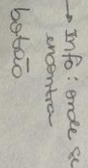 → Info: onde se
encontra
botão